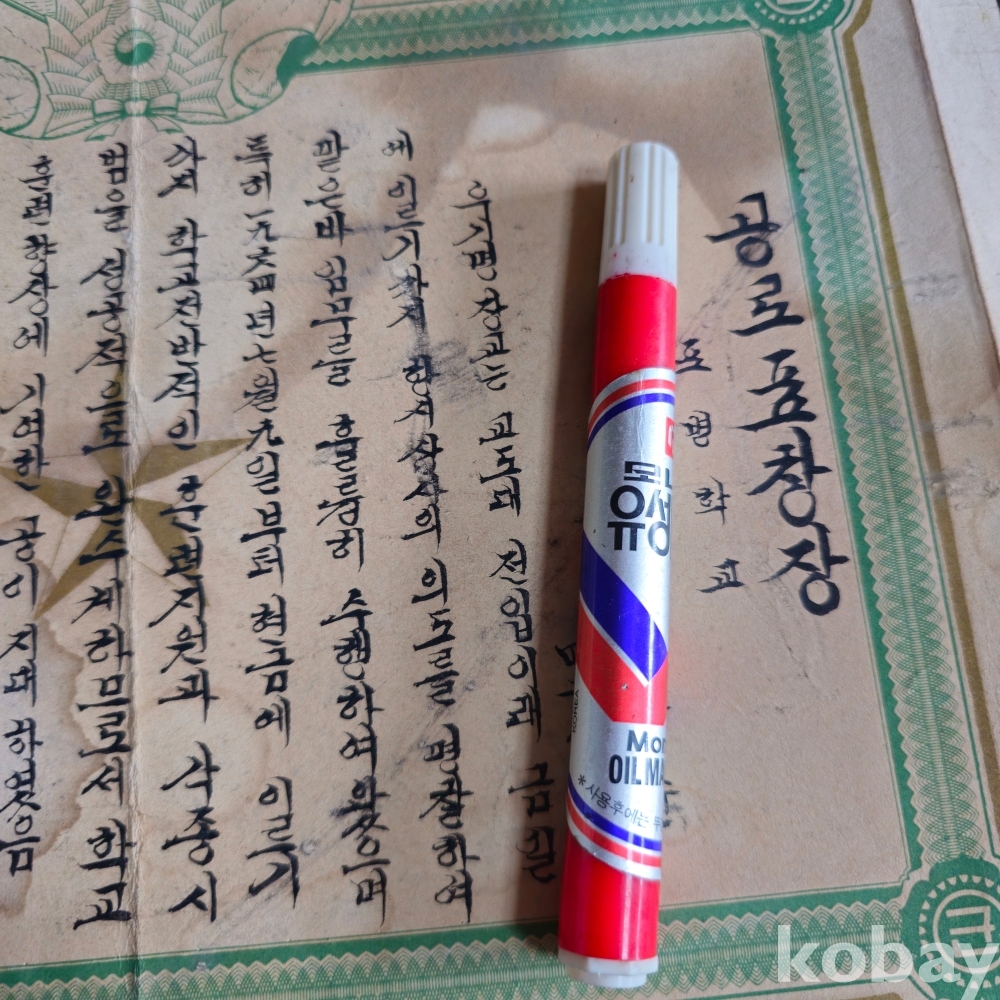 공로표창장
포병학교
우기명장교는 교도대 전입이래 금일
에 이르기까지 항시 상사의 의도를 명찰하여
맡은바 임무를 훌륭히 수행하여왔으며
특히 一九六四년 七월 九일부터 현금에 이르기
까지 학교전반적인 훈련지원과 각종시
범을 성공적으로 완수케하므로서 학교
훈련향상에 기여한 공이 지대하였음
유성
OIL MA
*사용후에는
KOREA
kobay